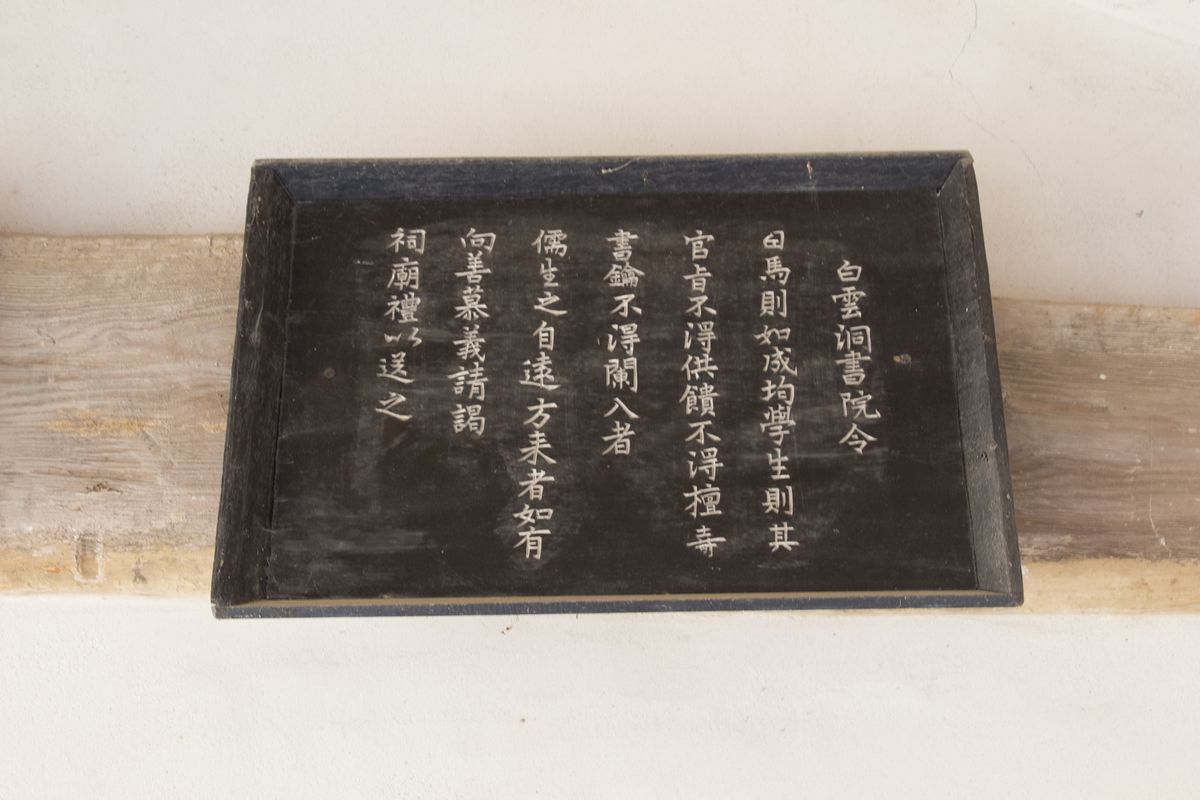 白雲洞書院令
曰馬則如成均學生則其
官㫖不淂供饋不淂擅壽
書鑰不淂闌入者
儒生之自遠方来者如有
向善慕義請謁
祠廟禮以送之